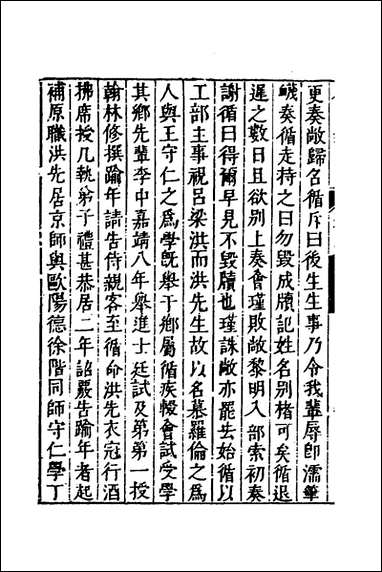 更奏敞歸名循斥曰後生生事乃令我輩辱即濡筆
畿奏循走持之曰勿毁成牘記姓名别楮可矣循退
遲之數日且欲别上奏會瑾敗敞黎明入部索初奏
謝循曰得爾早見不毁牘也瑾誅敞亦罷去始循以
工部主事視呂梁洪而洪先生故以名慕羅倫之爲
人與王守仁之爲學旣舉于鄉屬循疾輟會試受學
其鄉先輩李中嘉靖八年舉進士廷試及第第一授
翰林修撰踰年請告侍親客至循命洪先衣冠行酒
拂席授几執弟子禮甚恭居二年詔覈告踰年者起
補原職洪先居京師與歐陽德徐階同師守仁學丁